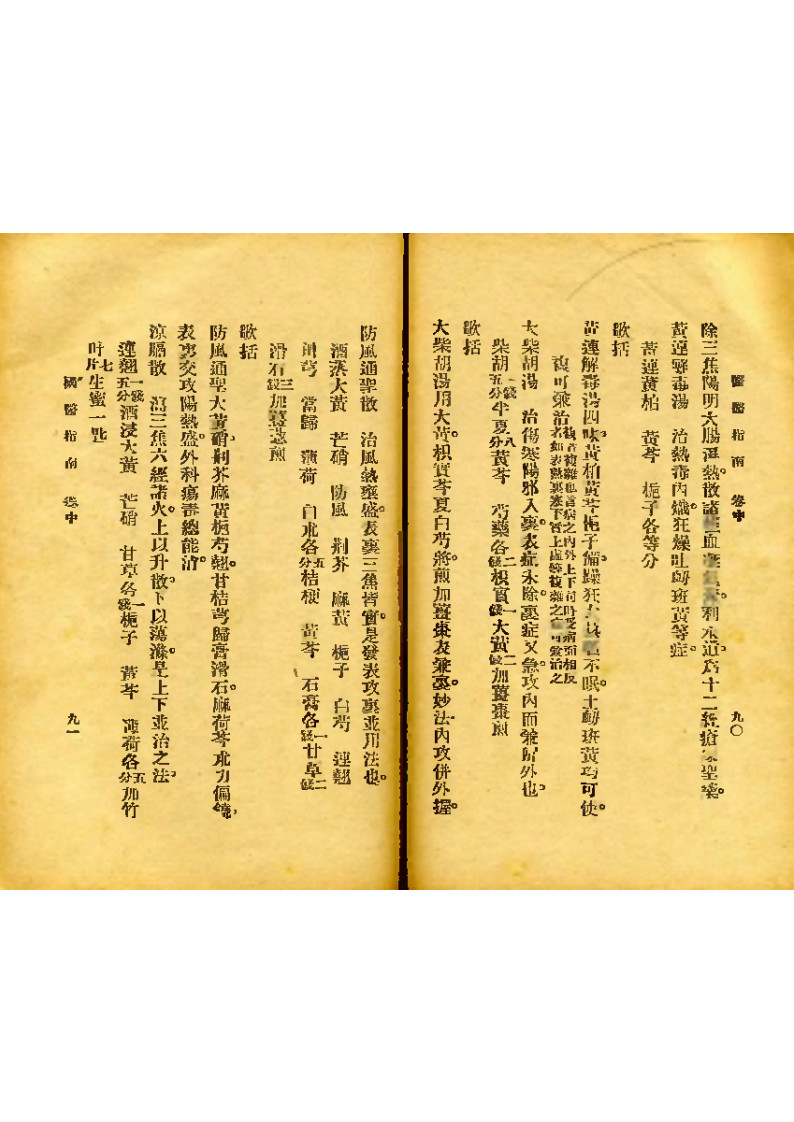 國醫指南 卷中 九〇
除三焦陽明大腸溫熱散諸經血凝氣聚利水道為十二經瘡家聖藥。
黃連解毒湯 治熱毒內熾狂燥吐衄班黃等症。
黃連黃柏 黃芩 梔子各等分
歌括
黃連解毒湯四味黃柏黃芩梔子備躁狂大熱不眠吐衄班黃均可使。
復可兼治
大柴胡湯 治傷寒陽邪入裏。表症未除裏症又急攻內而兼歸外也
柴胡一錢五分半夏八分黃芩 芍藥各二錢枳實一錢大黃二錢加薑棗煎
歌括
大柴胡湯用大黃枳實芩夏白芍將煎加薑棗表兼裏妙法內攻併外攘。
防風通聖散 治風熱壅盛。表裏三焦皆實是發表攻裏並用法也。
酒蒸大黃 芒硝 防風 荊芥 麻黃 梔子 白芍 連翹
川芎 當歸 薄荷 白朮各五分桔梗 黃芩 石膏各一錢甘草二錢
滑石三錢加薑葱煎
歌括
防風通聖大黃硝荊芥麻黃梔芍翹甘桔芎歸膏滑石。麻荷芩朮力偏饒
表裏交攻陽熱盛。外科瘍毒總能消。
涼膈散 瀉三焦六經諸火。上以升散下以蕩滌是上下並治之法
連翹一錢五分酒浸大黃 芒硝 甘草各一錢梔子 黃芩 薄荷各五分加竹
叶七片生蜜一匙
國醫指南 卷中 九一